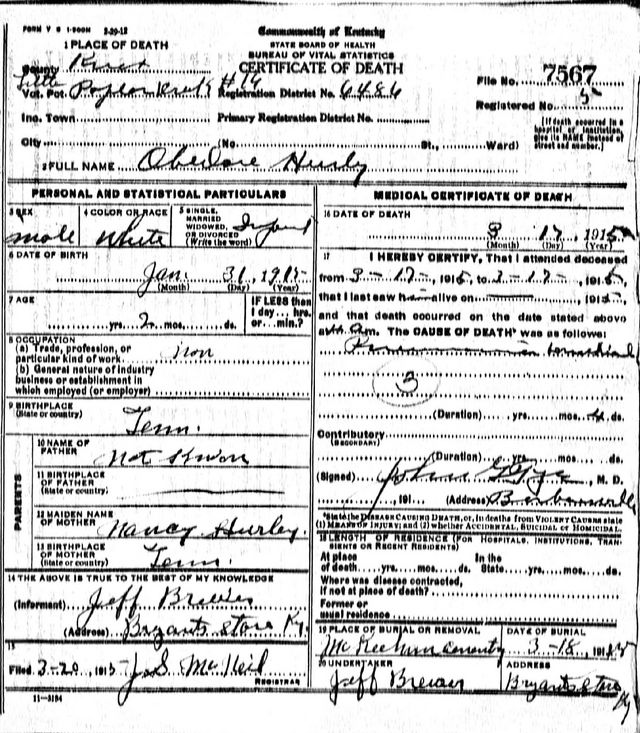 FORM V S 1-500M 3-29-12
Commonwealth of Kentucky
STATE BOARD OF HEALTH
BUREAU OF VITAL STATISTICS
CERTIFICATE OF DEATH
1 PLACE OF DEATH
County Knox
File No. 7567
Vot. Pct. Little Poplar Creek #14 Registration District No. 6486
Registered No. 5
Inc. Town Primary Registration District No.
[If death occurred in a hospital or institution, give its NAME instead of street and number.]
City (No. St., Ward)
2 FULL NAME Hurly
PERSONAL AND STATISTICAL PARTICULARS
3 SEX male
4 COLOR OR RACE White
5 SINGLE, MARRIED WIDOWED, OR DIVORCED (Write the word) Infant
6 DATE OF BIRTH
Jan. 31, 1915
(Month) (Day) (Year)
7 AGE
yrs. 2 mos. ds.
IF LESS than 1 day... hrs. or... min.?
8 OCCUPATION
(a) Trade, profession, or particular kind of work
(b) General nature of industry business or establishment in which employed (or employer)
9 BIRTHPLACE (State or country) Tenn.
PARENTS
10 NAME OF FATHER Not
11 BIRTHPLACE OF FATHER (State or country)
12 MAIDEN NAME OF MOTHER Nancy Hurley
13 BIRTHPLACE OF MOTHER (State or country) Tenn.
14 THE ABOVE IS TRUE TO THE BEST OF MY KNOWLEDGE
(Informant) Jeff Brewer
(Address) Bryants Store Ky.
15
Filed 3-20, 1915 J.S. REGISTRAR
11-3184
MEDICAL CERTIFICATE OF DEATH
16 DATE OF DEATH
3 17 1915
(Month) (Day) (Year)
17 I HEREBY CERTIFY, That I attended deceased
from 3-17-, 1915, to 3-17-, 1915,
that I last saw h alive on , 191
and that death occurred on the date stated above
at m. The CAUSE OF DEATH* was as follows:
3
(Duration) yrs. mos. ds.
Contributory (SECONDARY)
(Duration) yrs. mos. ds.
(Signed) John M. D.
, 191 (Address) Barbourville
*State the DISEASE CAUSING DEATH, or, in deaths from VIOLENT CAUSES state
(1) MEANS OF INJURY; and (2) whether ACCIDENTAL, SUICIDAL or HOMICIDAL.
18 LENGTH OF RESIDENCE (FOR HOSPITALS, INSTITUTIONS, TRANSIENTS OR RECENT RESIDENTS)
At place of death yrs. mos. ds. In the State yrs. mos. ds.
Where was disease contracted, if not at place of death?
Former or usual residence
19 PLACE OF BURIAL OR REMOVAL
DATE OF BURIAL
3-18, 1915
20 UNDERTAKER
Jeff Brewer
ADDRESS
Bryants Store Ky